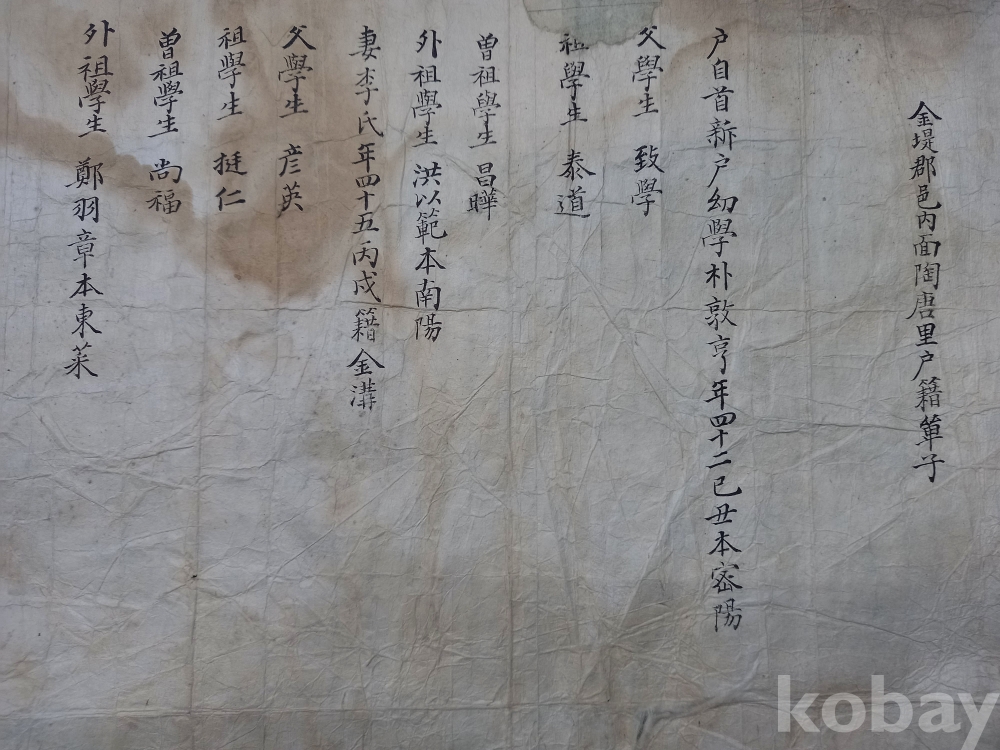 金堤郡邑內面陶唐里户籍單子
户自首新户幼學朴敦亨年四十二己丑本密陽
父學生 致學
祖學生 泰道
曽祖學生 昌曄
外祖學生 洪以範本南陽
妻李氏年四十五丙戌籍金溝
父學生 彦英
祖學生 挺仁
曽祖學生 尚福
外祖學生 鄭羽章本東萊
kobay